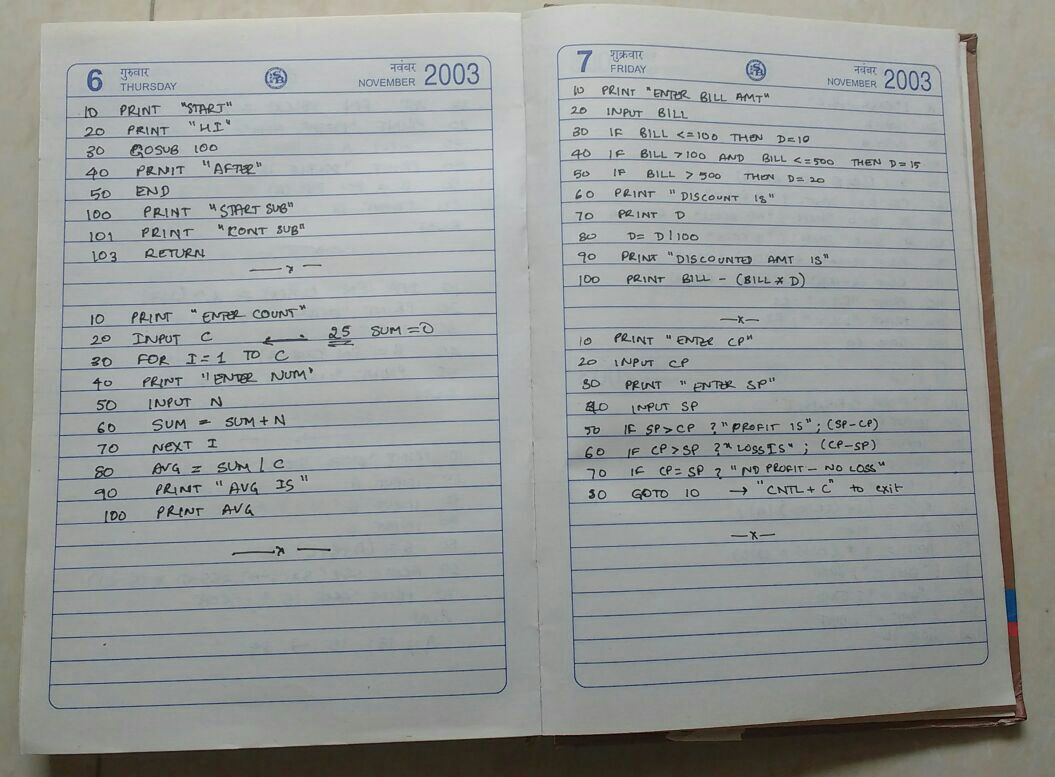 6 गुरुवार नवंबर
THURSDAY NOVEMBER 2003
10 PRINT "START"
20 PRINT "HI"
30 GOSUB 100
40 PRNIT "AFTER"
50 END
100 PRINT "START SUB"
101 PRINT "CONT SUB"
103 RETURN
10 PRINT "ENTER COUNT"
20 INPUT C ← 25 SUM=0
30 FOR I=1 TO C
40 PRINT "ENTER NUM"
50 INPUT N
60 SUM = SUM+N
70 NEXT I
80 AVG = SUM / C
90 PRINT "AVG IS"
100 PRINT AVG
7 शुक्रवार नवंबर
FRIDAY NOVEMBER 2003
10 PRINT "ENTER BILL AMT"
20 INPUT BILL
30 IF BILL <=100 THEN D=10
40 IF BILL >100 AND BILL <=500 THEN D=15
50 IF BILL > 500 THEN D=20
60 PRINT "DISCOUNT IS"
70 PRINT D
80 D= D/100
90 PRINT "DISCOUNTED AMT IS"
100 PRINT BILL - (BILL * D)
10 PRINT "ENTER CP"
20 INPUT CP
30 PRINT "ENTER SP"
40 INPUT SP
50 IF SP>CP ? "PROFIT IS"; (SP-CP)
60 IF CP>SP ? "LOSS IS"; (CP-SP)
70 IF CP=SP ? "NO PROFIT - NO LOSS"
80 GOTO 10 → "CNTL + C" to exit